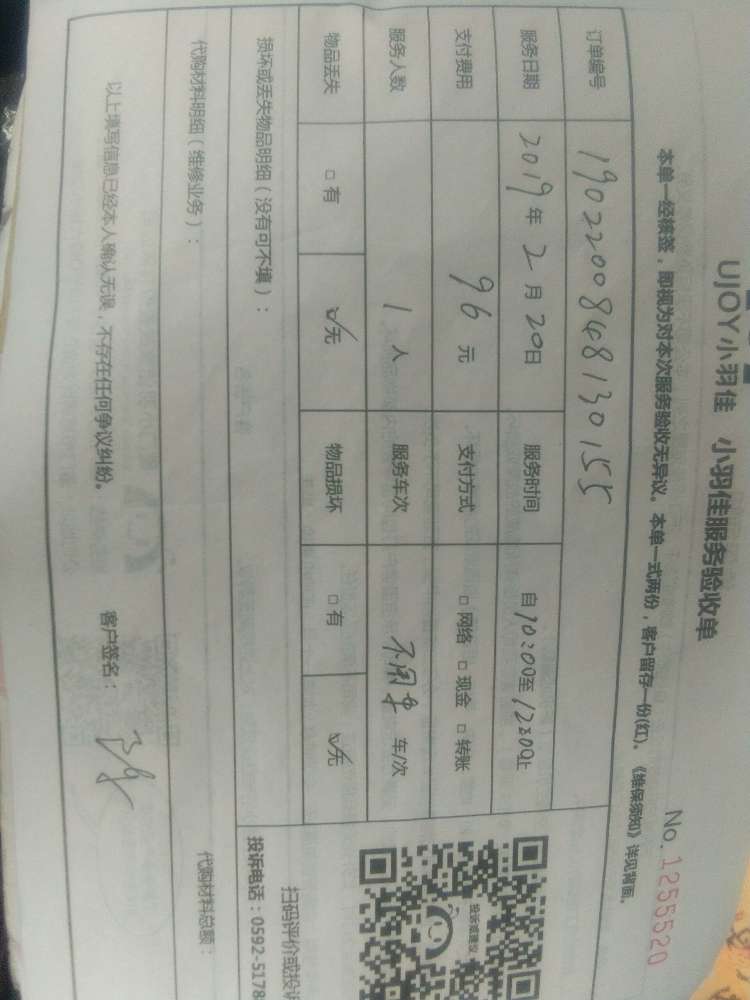 UJOY小羽佳 小羽佳服务验收单
No. 1255520
本单一经核签，即视为对本次服务验收无异议。本单一式两份，客户留存一份(红)。《维保须知》详见背面。
订单编号 190220084813 0155
服务日期 2019年2月20日 服务时间 自10:00至12:00止
支付费用 96元 支付方式 □网络 □现金 □转账
服务人数 1人 服务车次 不用车 车/次
物品丢失 □有 ☑无 物品损坏 □有 ☑无
损坏或丢失物品明细（没有可不填）：
扫码评价或投诉
投诉电话：0592-5178
代购材料明细（维修业务）： 代购材料总额：
以上填写信息已经本人确认无误，不存在任何争议纠纷。 客户签名：